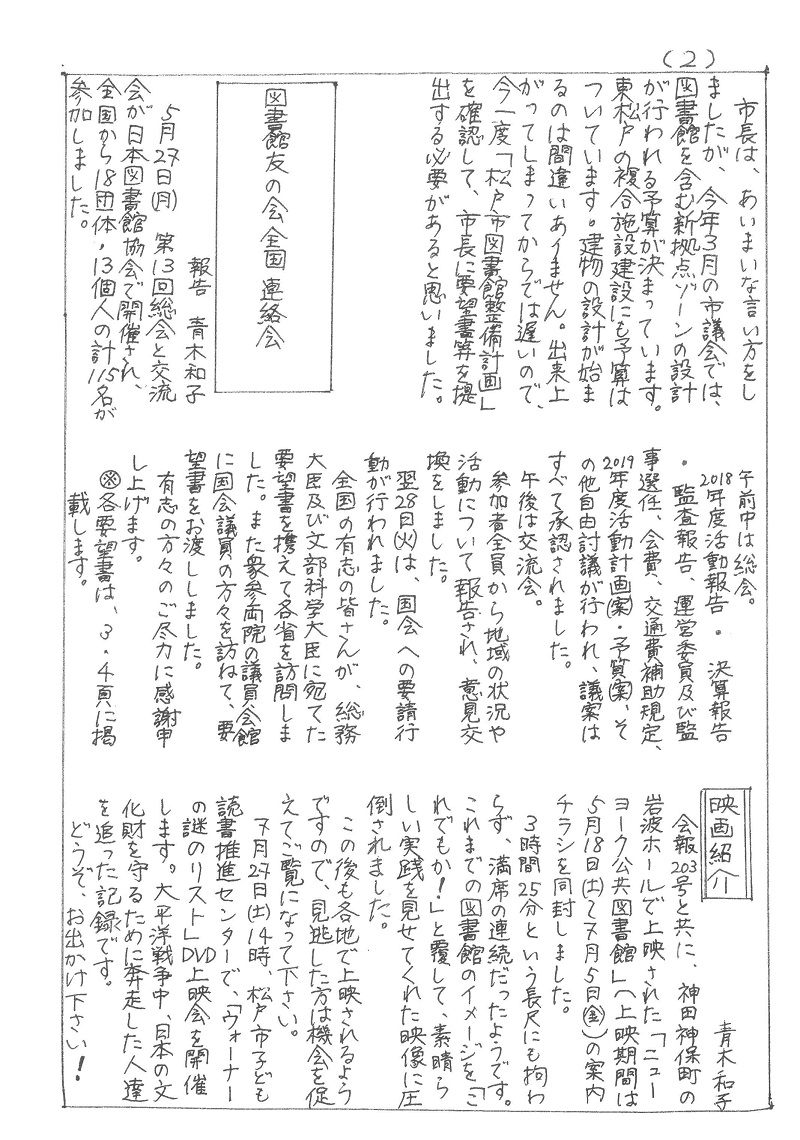 (2)
市長は、あいまいな言い方をし
ましたが、今年3月の市議会では、
図書館を含む新拠点ゾーンの設計
が行われる予算が決まっています。
東松戸の複合施設建設にも予算は
ついています。建物の設計が始ま
るのは間違いありません。出来上
がってしまってからでは遅いので、
今一度「松戸市図書館整備計画」
を確認して、市長に要望書等を提
出する必要があると思いました。
図書館友の会全国連絡会
報告 青木和子
5月27日(月) 第13回総会と交流
会が日本図書館協会で開催され、
全国から18団体・13個人の計115名が
参加しました。
午前中は総会。
2018年度活動報告・決算報告
・監査報告、運営委員及び監
事選任、会費、交通費補助規定、
2019年度活動計画(案)・予算(案)、そ
の他自由討議が行われ、議案は
すべて承認されました。
午後は交流会。
参加者全員から地域の状況や
活動について報告され、意見交
換をしました。
翌28日(火)は、国会への要請行
動が行われました。
全国の有志の皆さんが、総務
大臣及び文部科学大臣に宛てた
要望書を携えて各省を訪問しま
した。また衆参両院の議員会館
に国会議員の方々を訪ねて、要
望書をお渡ししました。
有志の方々のご尽力に感謝申
し上げます。
※各要望書は、3・4頁に掲
載します。
映画紹介
青木和子
会報203号と共に、神田神保町の
岩波ホールで上映された「ニュー
ヨーク公共図書館」(上映期間は
5月18日(土)~7月5日(金))の案内
チラシを同封しました。
3時間25分という長尺にも拘わ
らず、満席の連続だったようです。
これまでの図書館のイメージを「こ
れでもか!」と覆して、素晴ら
しい実践を見せてくれた映像に圧
倒されました。
この後も各地で上映されるよう
ですので、見逃した方は機会を促
えてご覧になって下さい。
7月27日(土)14時、松戸市子ども
読書推進センターで、「ウォーナー
の謎のリスト」DVD上映会を開催
します。大平洋戦争中、日本の文
化財を守るために奔走した人達
を追った記録です。
どうぞ、お出かけ下さい!